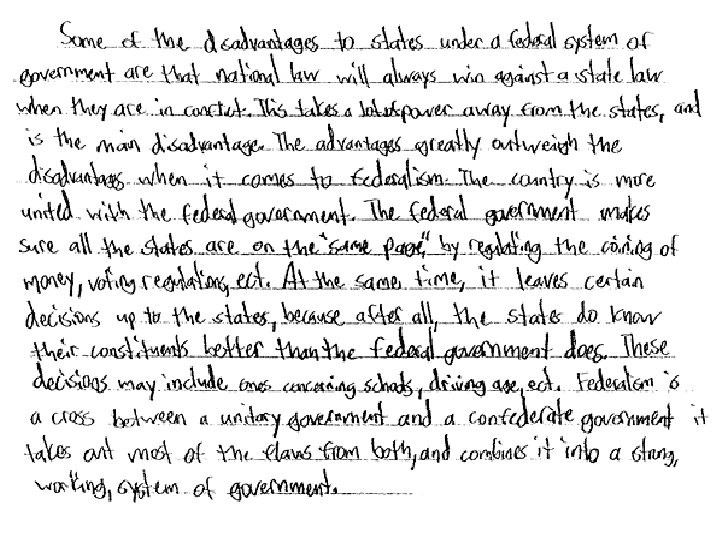 Some of the disadvantages to states under a federal system of
government are that national law will always win against a state law
when they are in conflict. This takes a lot of power away from the states, and
is the main disadvantage. The advantages greatly outweigh the
disadvantages when it comes to federalism. The country is more
united with the federal government. The federal government makes
sure all the states are on the "same page," by regulating the coining of
money, voting regulations, ect. At the same time, it leaves certain
decisions up to the states, because after all, the states do know
their constituents better than the federal government does. These
decisions may include ones concerning schools, driving age, ect. Federalism is
a cross between a unitary government and a confederate government it
takes out most of the flaws from both, and combines it into a strong,
working, system of government.